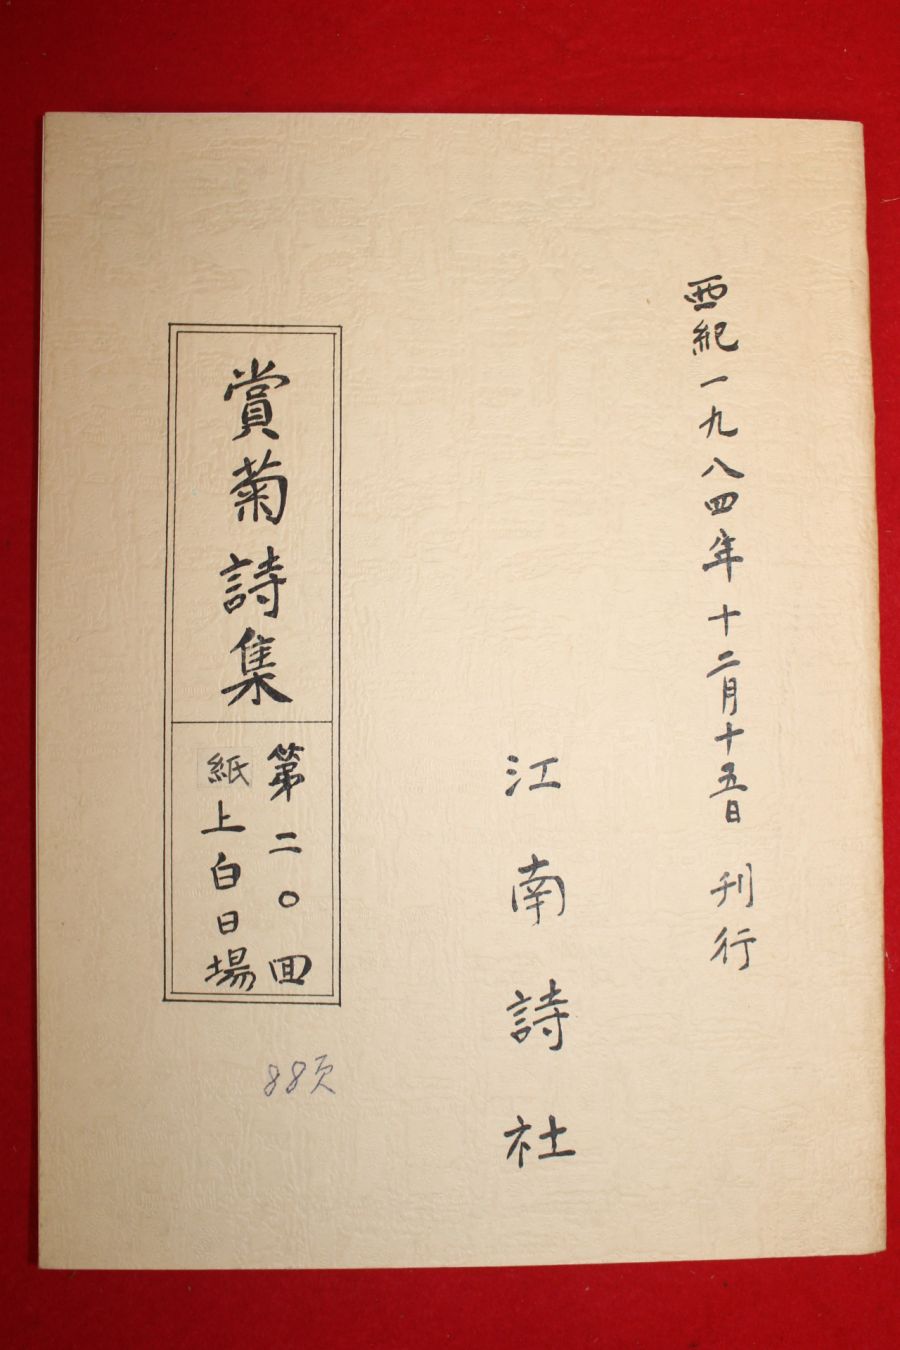 西紀一九八四年十二月十五日 刊行
江南詩社
賞菊詩集
第二〇回
紙上白日場
88頁